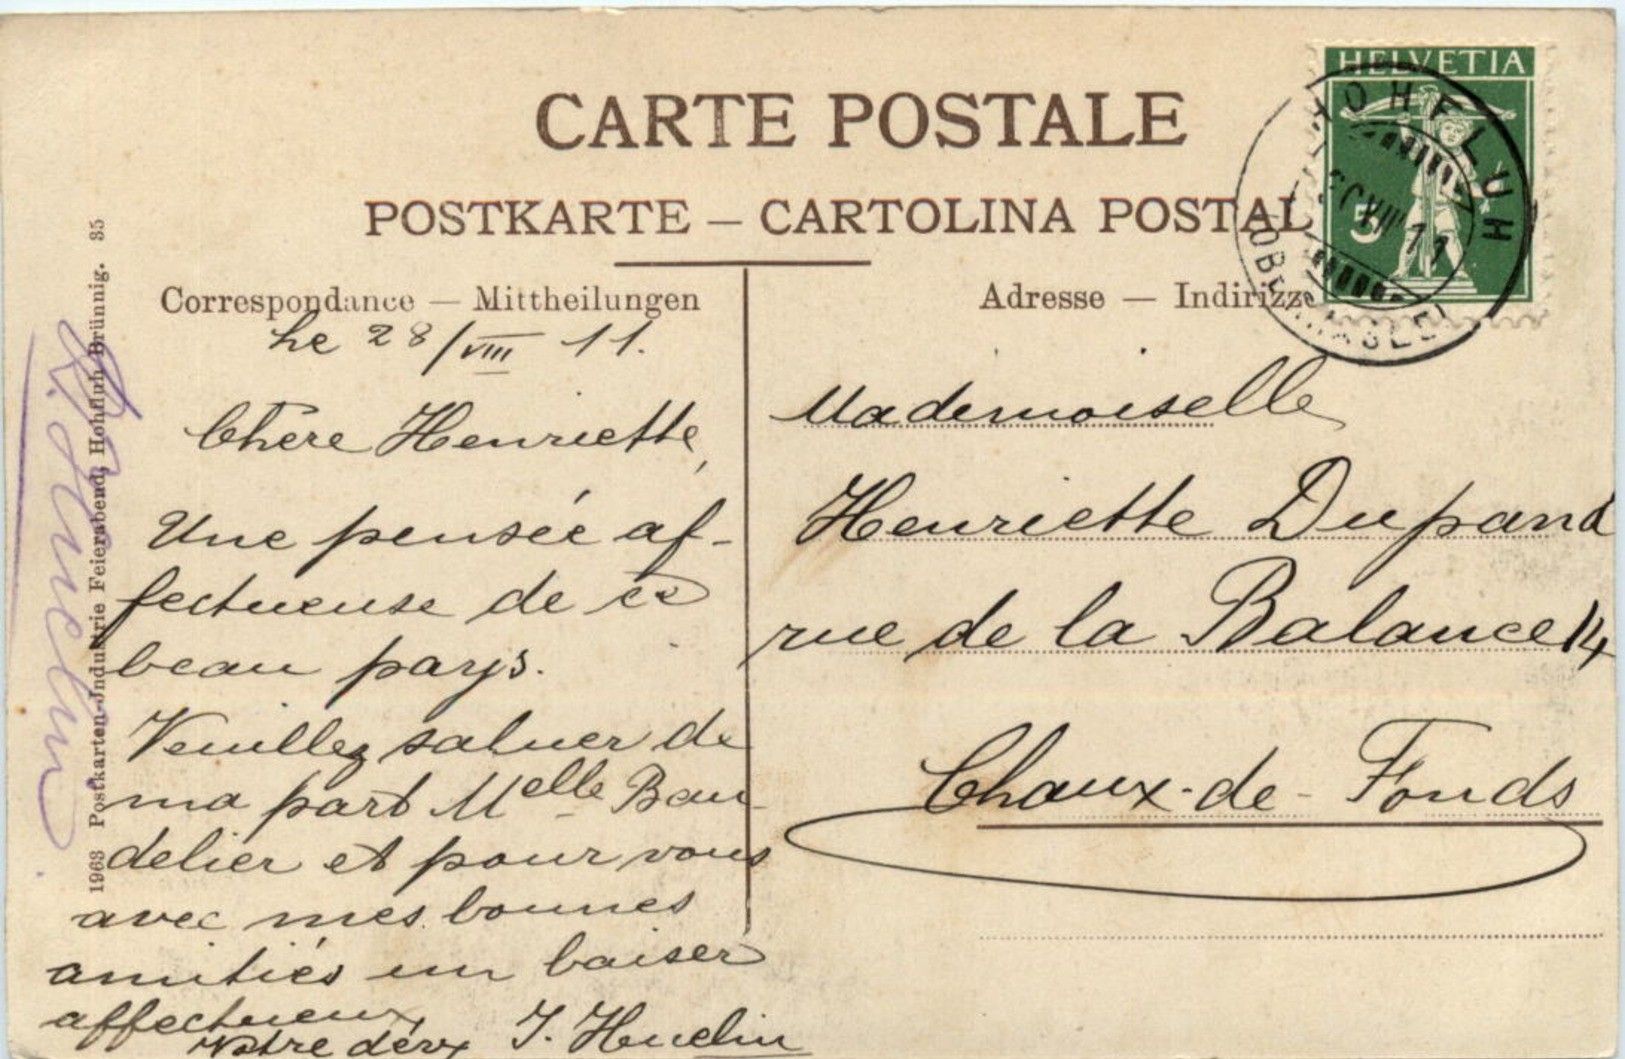 CARTE POSTALE
POSTKARTE – CARTOLINA POSTAL
Correspondance — Mittheilungen
Adresse — Indirizzo
HELVETIA
5
HOHFLUH
VIII 11
Le 28/VIII 11.
Chère Henriette,
Une pensée af-
fectueuse de ce
beau pays.
Veuillez saluer de
ma part Melle Bau-
delier et pour vous
avec mes bonnes
amitiés un baiser
affectueux,
Votre dév
Mademoiselle
Henriette Dupand
rue de la Balance 14
Chaux-de-Fonds
1963 Postkarten-Industrie Feierabend, Hohfluh-Brünnig. 35